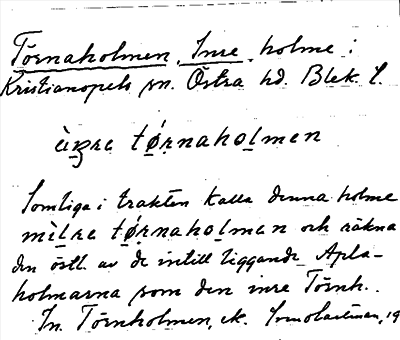 Törnaholmen, Inre holme i
Kristianopels sn. Östra hd. Blek. l.
ìŋre tǿrnahoļmen
Somliga i trakten kalla denna holme
mìļre tǿrnahoļmen och räkna
den östl. av de intill liggande Apla-
holmarna som den inre Törnh.
In. Törnholmen, ek.